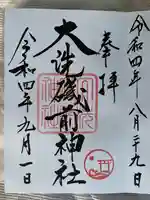 令和四年八月二十九日
奉拝
大洗磯前神社
令和四年九月一日